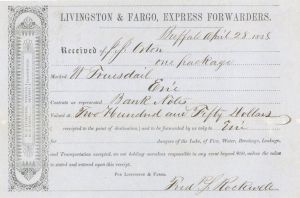 LIVINGSTON & FARGO, EXPRESS FORWARDERS.
Buffalo April 28
Received of J. J. Orton
one package
Marked W Truesdail
Erie
Contents as represented Bank Notes
Valued at Two Hundred and Fifty Dollars
receipted to the point of destination; and to be forwarded by us only to Erie
dangers of the Lake, of Fire, Water, Breakage, Leakage,
and Transportation excepted, we not holding ourselves responsible in any event beyond $50, unless the value
is stated and entered upon this receipt.
For LIVINGSTON & FARGO.
Fred Rockwell